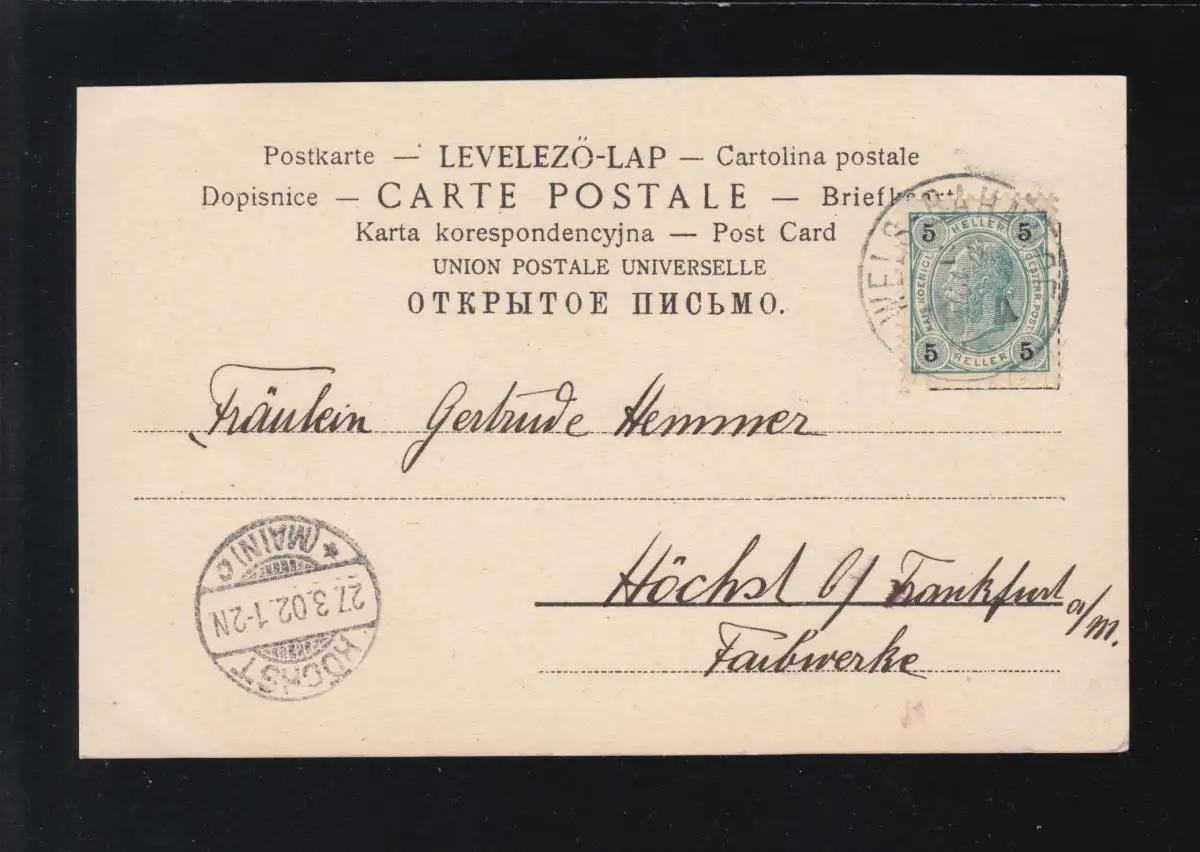 Postkarte — LEVELEZŐ-LAP — Cartolina postale
Dopisnice — CARTE POSTALE — Briefkart
Karta korespondencyjna — Post Card
UNION POSTALE UNIVERSELLE
ОТКРЫТОЕ ПИСЬМО.
WELS BAHNHOF
5 HELLER 5
KAIS. KOENIGL. OESTERR. POST
5 HELLER 5
Fräulein Gertrude Hemmer
Höchst b/ Frankfurt a/M.
Farbwerke
* (MAIN) c
27.3.02.1-2N
HÖCHST